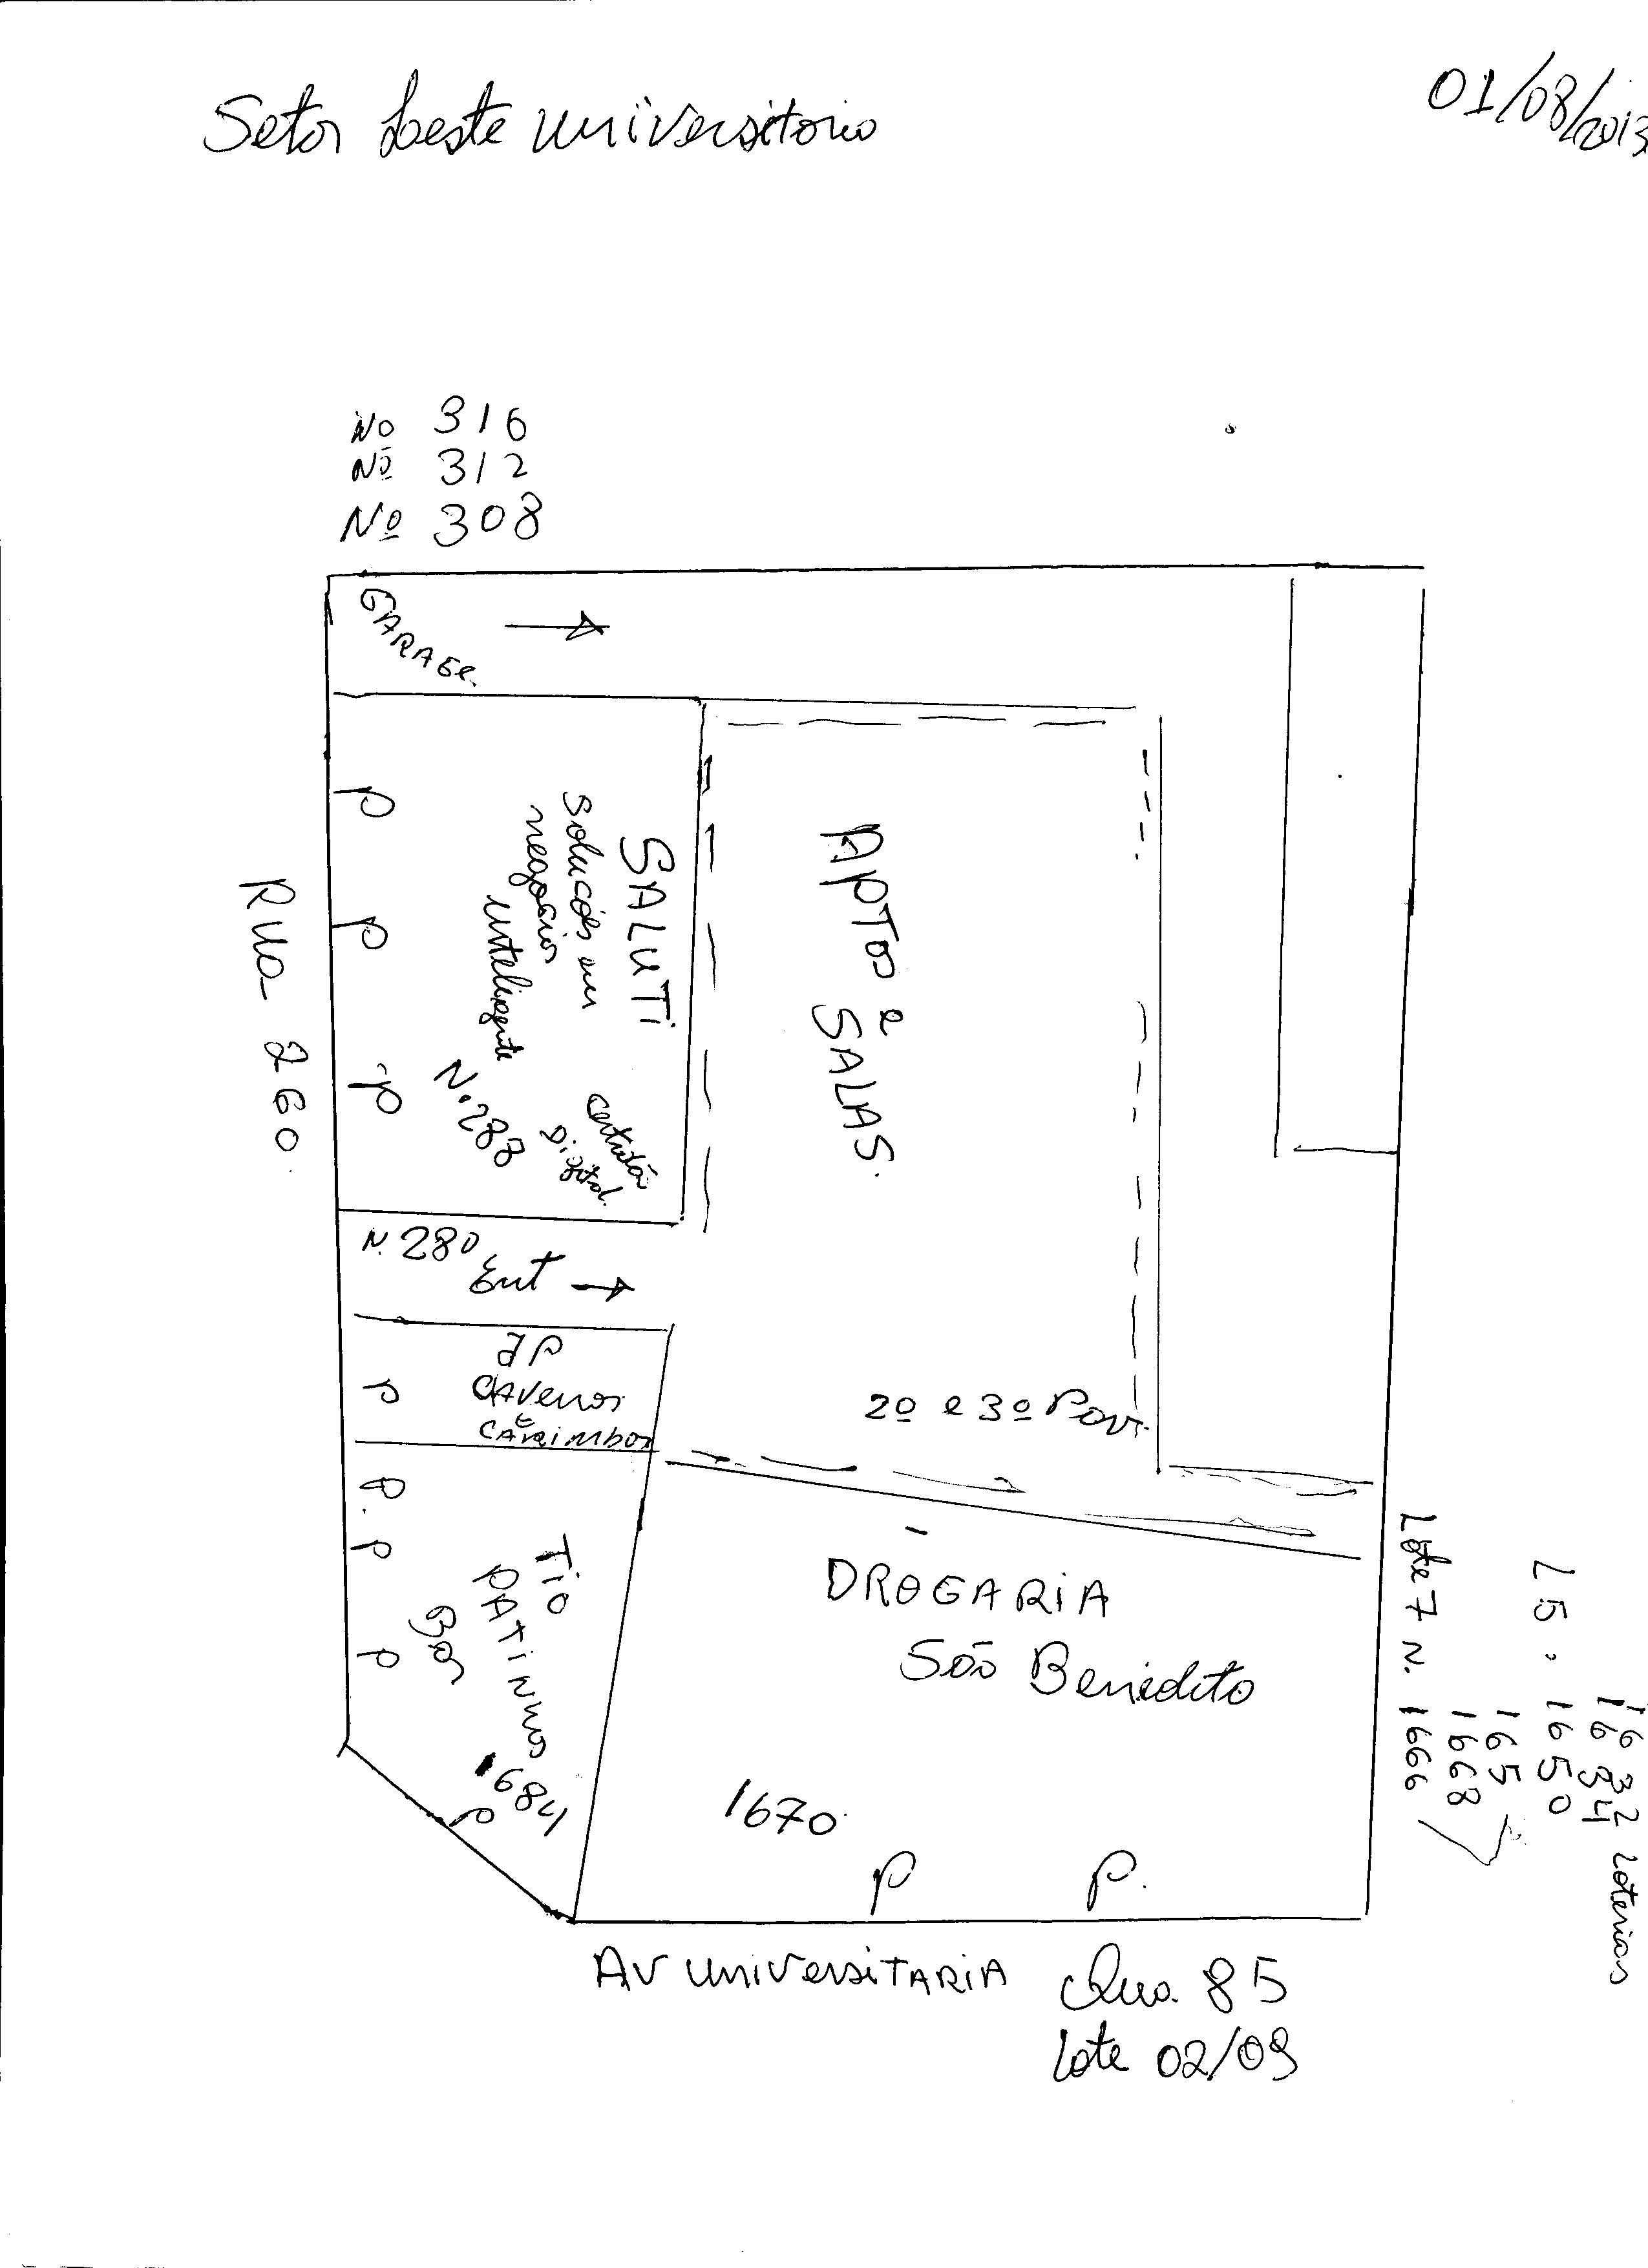 Setor Leste universitário
01/08/2013
No 316
Nº 312
Nº 308
GARAGE
SALUTI
Soluções em
negócios
inteligente
Certidã
Digital.
N. 288
APTOS e
SALAS.
P
P
P
Rua 260
N. 280
Ent
JP
P
CAVENOS
E
CARIMBOS
P.
P
P
TiO
PATINHOS
Bar
1684
P
2º e 3º Pav.
DROGARIA
São Benedito
1670
P
P.
Lote 7 N. 1666
1668
165
L 5. 1650
1634
1632 Loterias
AV UNIVERSITARIA
Qua. 85
Lote 02/09